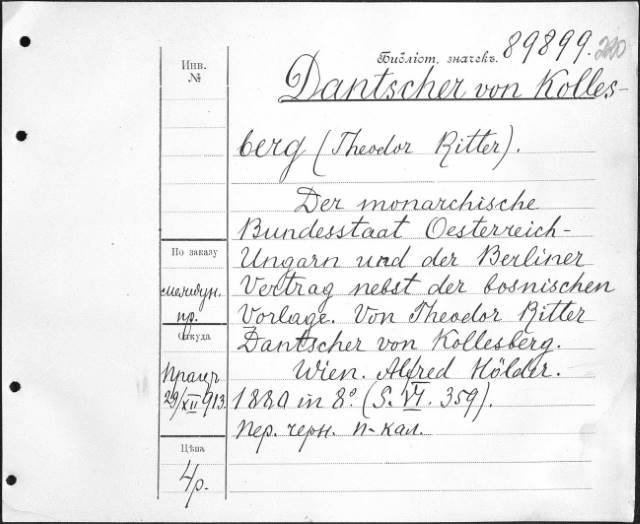 Инв. №
Библіот. значекъ. 89899.
Dantscher von Kolles-
berg (Theodor Ritter).
Der monarchische
Bundesstaat Oesterreich-
Ungarn und der Berliner
Vertrag nebst der bosnischen
Vorlage. Von Theodor Ritter
Dantscher von Kollesberg.
Wien. Alfred Hölder.
1880 in 8º. (S. VI. 359).
Пер. черн. п-кал.
По заказу
пр.
Откуда
Працъ
29/XII 913.
Цѣна
4р.